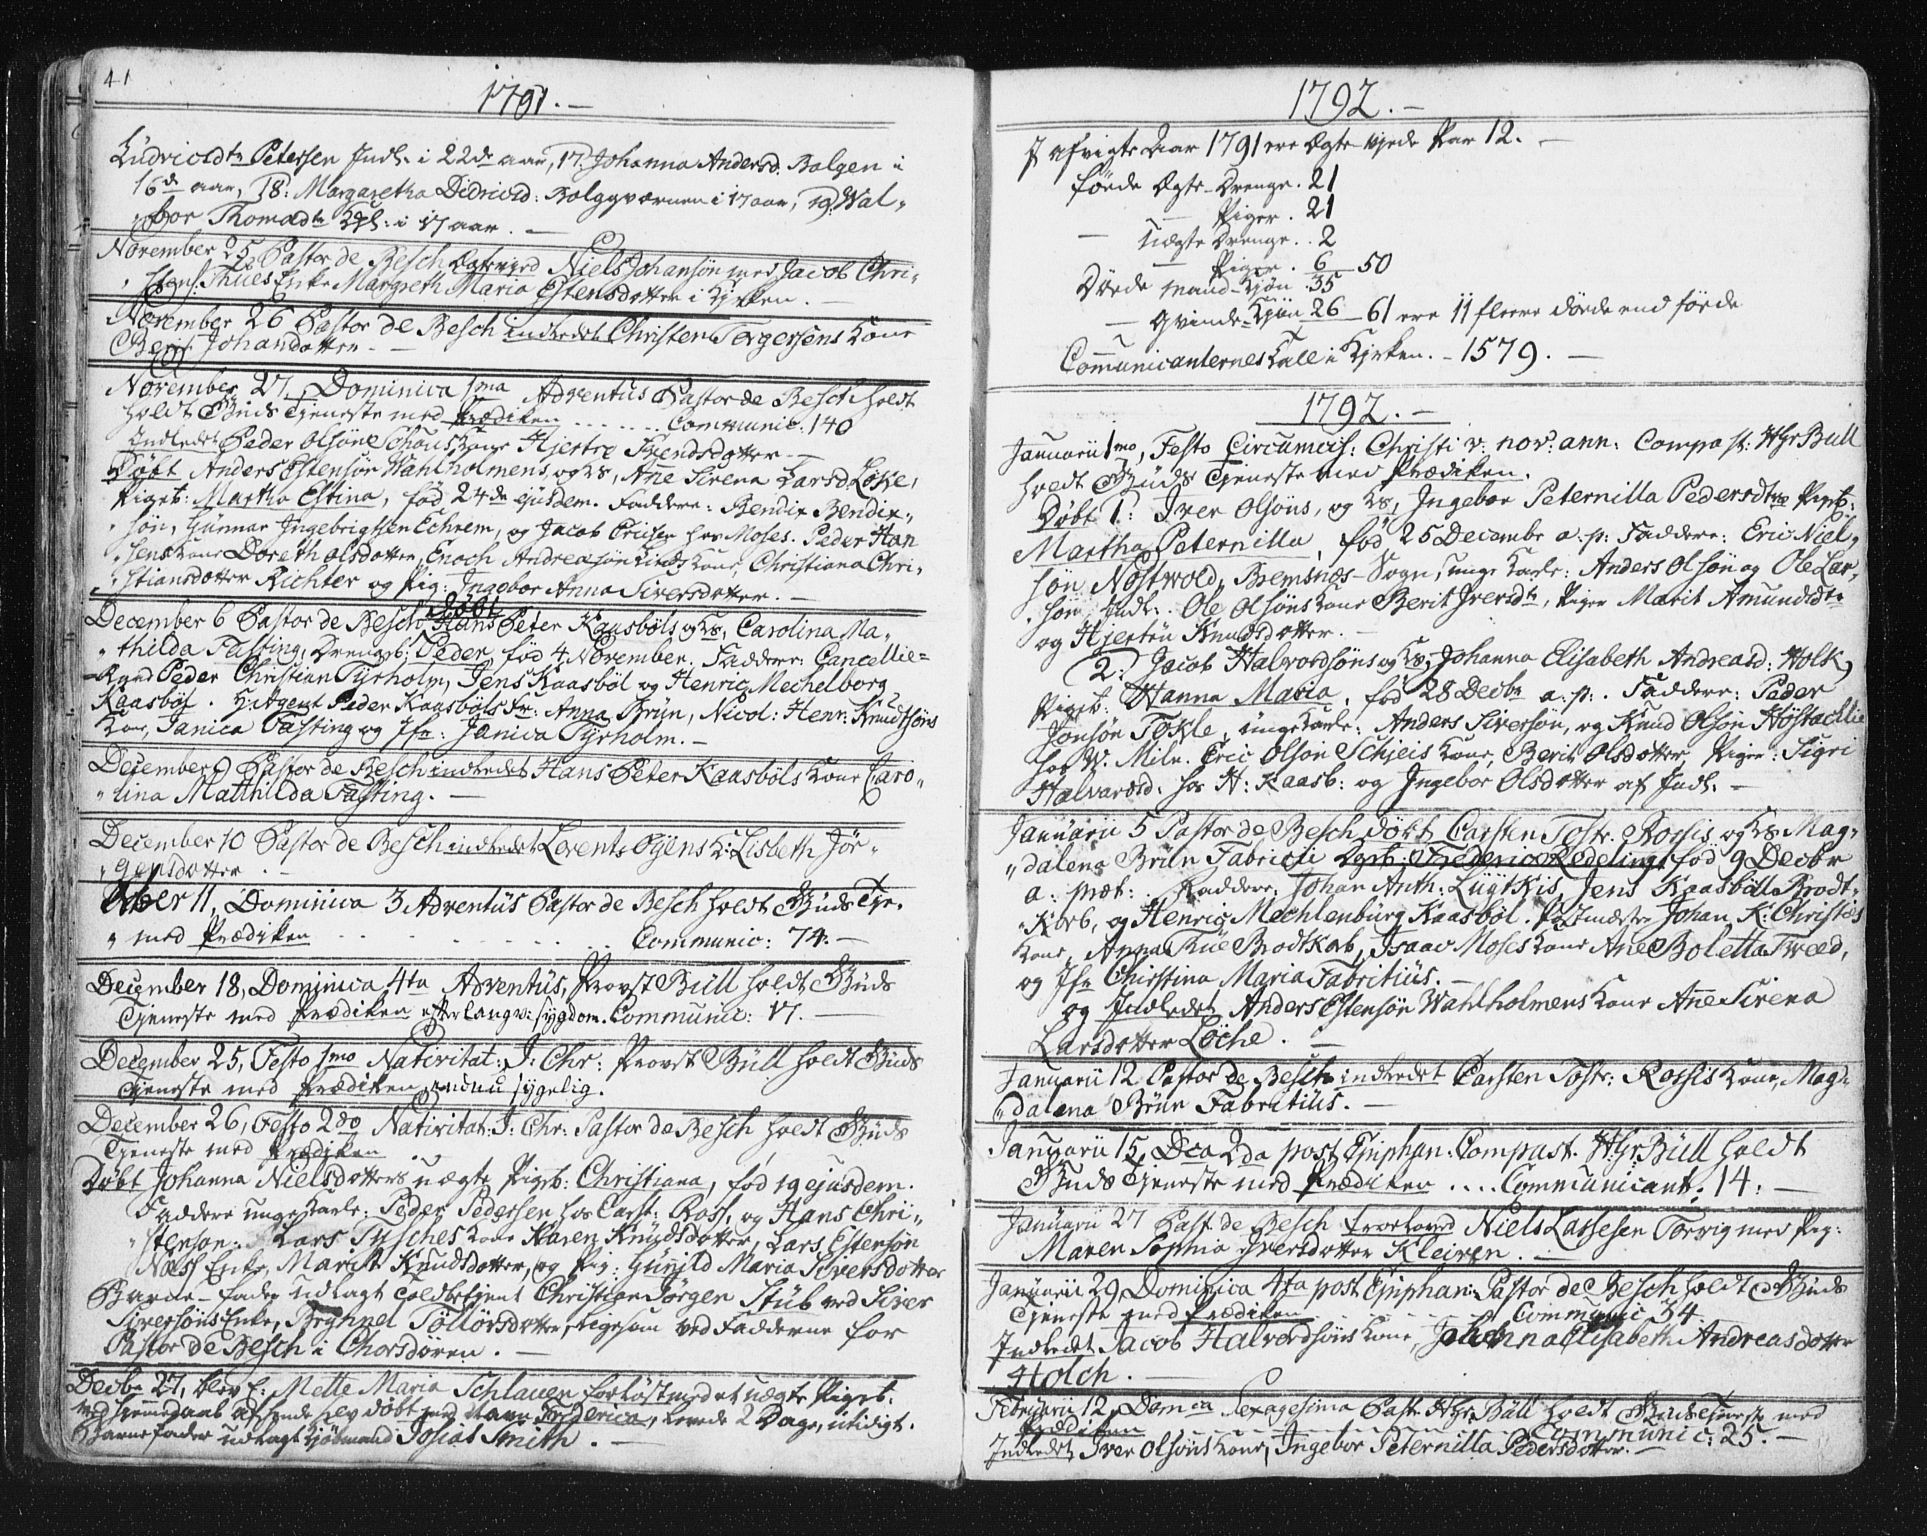 41
1791.-
Ludvicdtr Petersen Indl. i 22de aar, 17. Johanna Andersd. Bolgen i
16d aar, 18: Margaretha Didricd: Bolggværnen i 17 aar, 19. Wal„
„bor Thomædtr i 17 aar. -
November 25 Pastor de Besch Egtevied Niels Johansøn med Jacob Chri„
„ Thues Enke Margreth Maria Estensdotter i Kirken. -
November 26 Pastor de Besch indledet Christen Torgersens Kone
Berit Johansdotter. -
November 27, Dominica 1ma Adventus Pastor de Besch holdt
holdt Guds Tjeneste med Prædiken . . . . . . Communic: 140
Indledet Peder Olsøns Schous Kone Hjertre Frendsdotter -
Døbt Anders Estensøn Wahlholmens, og Hs, Ane Sirena Larsd. Løke,
Pigeb: Martha Estina, fød 24de ejusdem. Faddere: Bendix Bendix„
„søn, Gunnar Ingebrigtsen Echrem, og Jacob hos Moses. Peder Han
„sens Kone Doreth Olsdotter, Enoch Andreasøn Kone, Christiana Chri„
„stiansdotter Richter og Pig: Ingebor Anna Siversdotter. -
December 6 Pastor de Besch døbt Hans Peter Kaasbøls og Hs, Carolina Ma„
„thilda Fasting, Drengeb: Peder, fød 4 November. Faddere: Cancellie=
Raad Peder Christian Tyrholm, Jens Kaasbøl og Henric Mechelborg
Kaasbøl. H: Agent Peder Kaasbøls Fr: Anna Brün, Nicol: Henr: Knudtsøns
Kone, Janica Fasting og Jfr: Janica Tyrholm. -
December 9 Pastor de Besch indledet Hans Peter Kaasbøls Kone Caro„
„lina Matthilda Fasting. -
December 10 Pastor de Besch indledet Lorents Øyens K: Lisbeth Jør„
„gensdotter. -
Dcber 11, Dominica 3 Adventus Pastor de Besch holdt Guds Tje„
„ med Prædiken . . . . . . . . Communic: 74. -
December 18, Dominica 4ta Adventus, Provst Bull holdt Guds
Tjeneste med Prædiken efter langv: sygdom. Communic: 17. -
December 25, Festo 1mo Nativitat: J: Chr: Provst Bull holdt Guds
Tjeneste med Prædiken, endnu sygelig.
December 26, Festo 2do Nativitat: J: Chr: Pastor de Besch holdt Guds
Tjeneste med Prædiken
Døbt Johanna Nielsdotters uægte Pigeb: Christiana, fød 19 ejusdem.
Faddere unge Karle: Peder Pedersen hos Carst: Ross, og Hans Chri„
„stensøn: Lars Tysches Kone Karen Knudsdotter, Lars Estensøn
Næss Enke, Marit Knudsdotter, og Pig: Gunild Maria Siversdotter
Barne-fader udlagt Toldbetjent Christian Jørgen Stub ved Siver
Siversøns Enke, Beghnel Tølløvsdotter, ligesom ved Fadderne for
Pastor de Besch i Chorsdøren. -
Decbr 27, blev f: Mette Maria Schlauen forløst med et uægte Pigeb.
ved hjemmedaab af hende selv døbt med Navn Friderica, levede 2 Dage, utidigt.
Barnefader udlagt Kjøbmand Josias Smith. -
1792. -
I afvigte Aar 1791 ere Egte viede Par 12. -
fødde Egte - Drenge. 21
— Piger. 21
- Uægte Drenge. . 2
— Piger. 6 50
Døde Mand-Kjøn . 35
— Qvinde-Kjøn 26 61 ere 11 fleere døde end fødde
Communicanternes Tall i Kirken. - 1579. -
1792. -
Januarii 1mo, Festo Circumcis: Christi v: nov: ann: Compast: Hr Bull
holdt Guds Tjeneste med Prædiken.
Døbt 1: Iver Olsøns, og Hs, Ingebor Peternilla Pedersdtrs Pigeb:
Martha Peternilla, fød 25 Decembr a. p: Faddere: Eric Niel„
søn Nostvold, Bremsnæs-Sogn, unge Karle: Anders Olsøn og Ole Lar„
„søn Indl. Ole Olsøns Kone Berit Iversdtr, Piger Marit Amundsdtr
og Hjerten Knudsdotter. -
2: Jacob Halvordsøns og Hs, Johanna Elisabeth Andreasd: Holk,
Pigeb: Hanna Maria, fød 28 Decbr a. p:. Faddere: Peder
Jonsøn Tøkle, unge Karle: Anders Siversøn, og Knud Olsøn Høystachlie
hos W. Miln. Eric Olsøn Schjeis Kone, Berit Olsdotter, Piger: Sigri
Halvarsd: hos H: Kaasb: og Ingebor Olsdotter af Indl. -
Januarii 5 Pastor de Besch døbt Carsten Tostr: Rossis og Hs Mag„
„dalena Brün Fabricii Dgrb: Frederic Redelings fød 9 Decbr
a: præt:. Faddere: Johan Anth: Lüytkis, Jens Kaasbøll Brodt„
„korb, og Henric Mechlenburg Kaasbøl. Postmestr Johan K: Christies
Kone, Anna Thue Brodtkorb, Isaac Moses Kone Ane Boletta Tweed,
og Jfr Christina Maria Fabritius. -
og Indledet Anders Estensøn Wahlholmens Kone Ane Sirena
Larsdotter Løche. -
Januarii 12 Pastor de Besch indledet Carsten Tostr: Rossis Kone, Mag„
„dalena Brün Fabritius. -
Januarii 15, Dca 2da post Epiphan: Compast. Hr Bull holdt
Guds Tjeneste med Prædiken . . . . Communicant: 14. -
Januarii 27 Past. de Besch troeloved Niels Larsesen Torvig med Pig:
Maren Sophia Iversdotter Kleiven. -
Januarii 29 Dominica 4ta post Epiphan: Pastor de Besch holdt Guds
Tjeneste med Prædiken . . . . . . Communic 34.
Indledet Jacob Halvordsøns Kone, Johanna Elisabeth Andreasdotter
Holch. -
Februarii 12, Domca Sexagesima Past: Hr Bull holdt Guds Tjeneste med
Prædiken . . . . . . . Communic: 25. -
Indledet, Iver Olsøns Kone, Ingebor Peternilla Pedersdotter. -